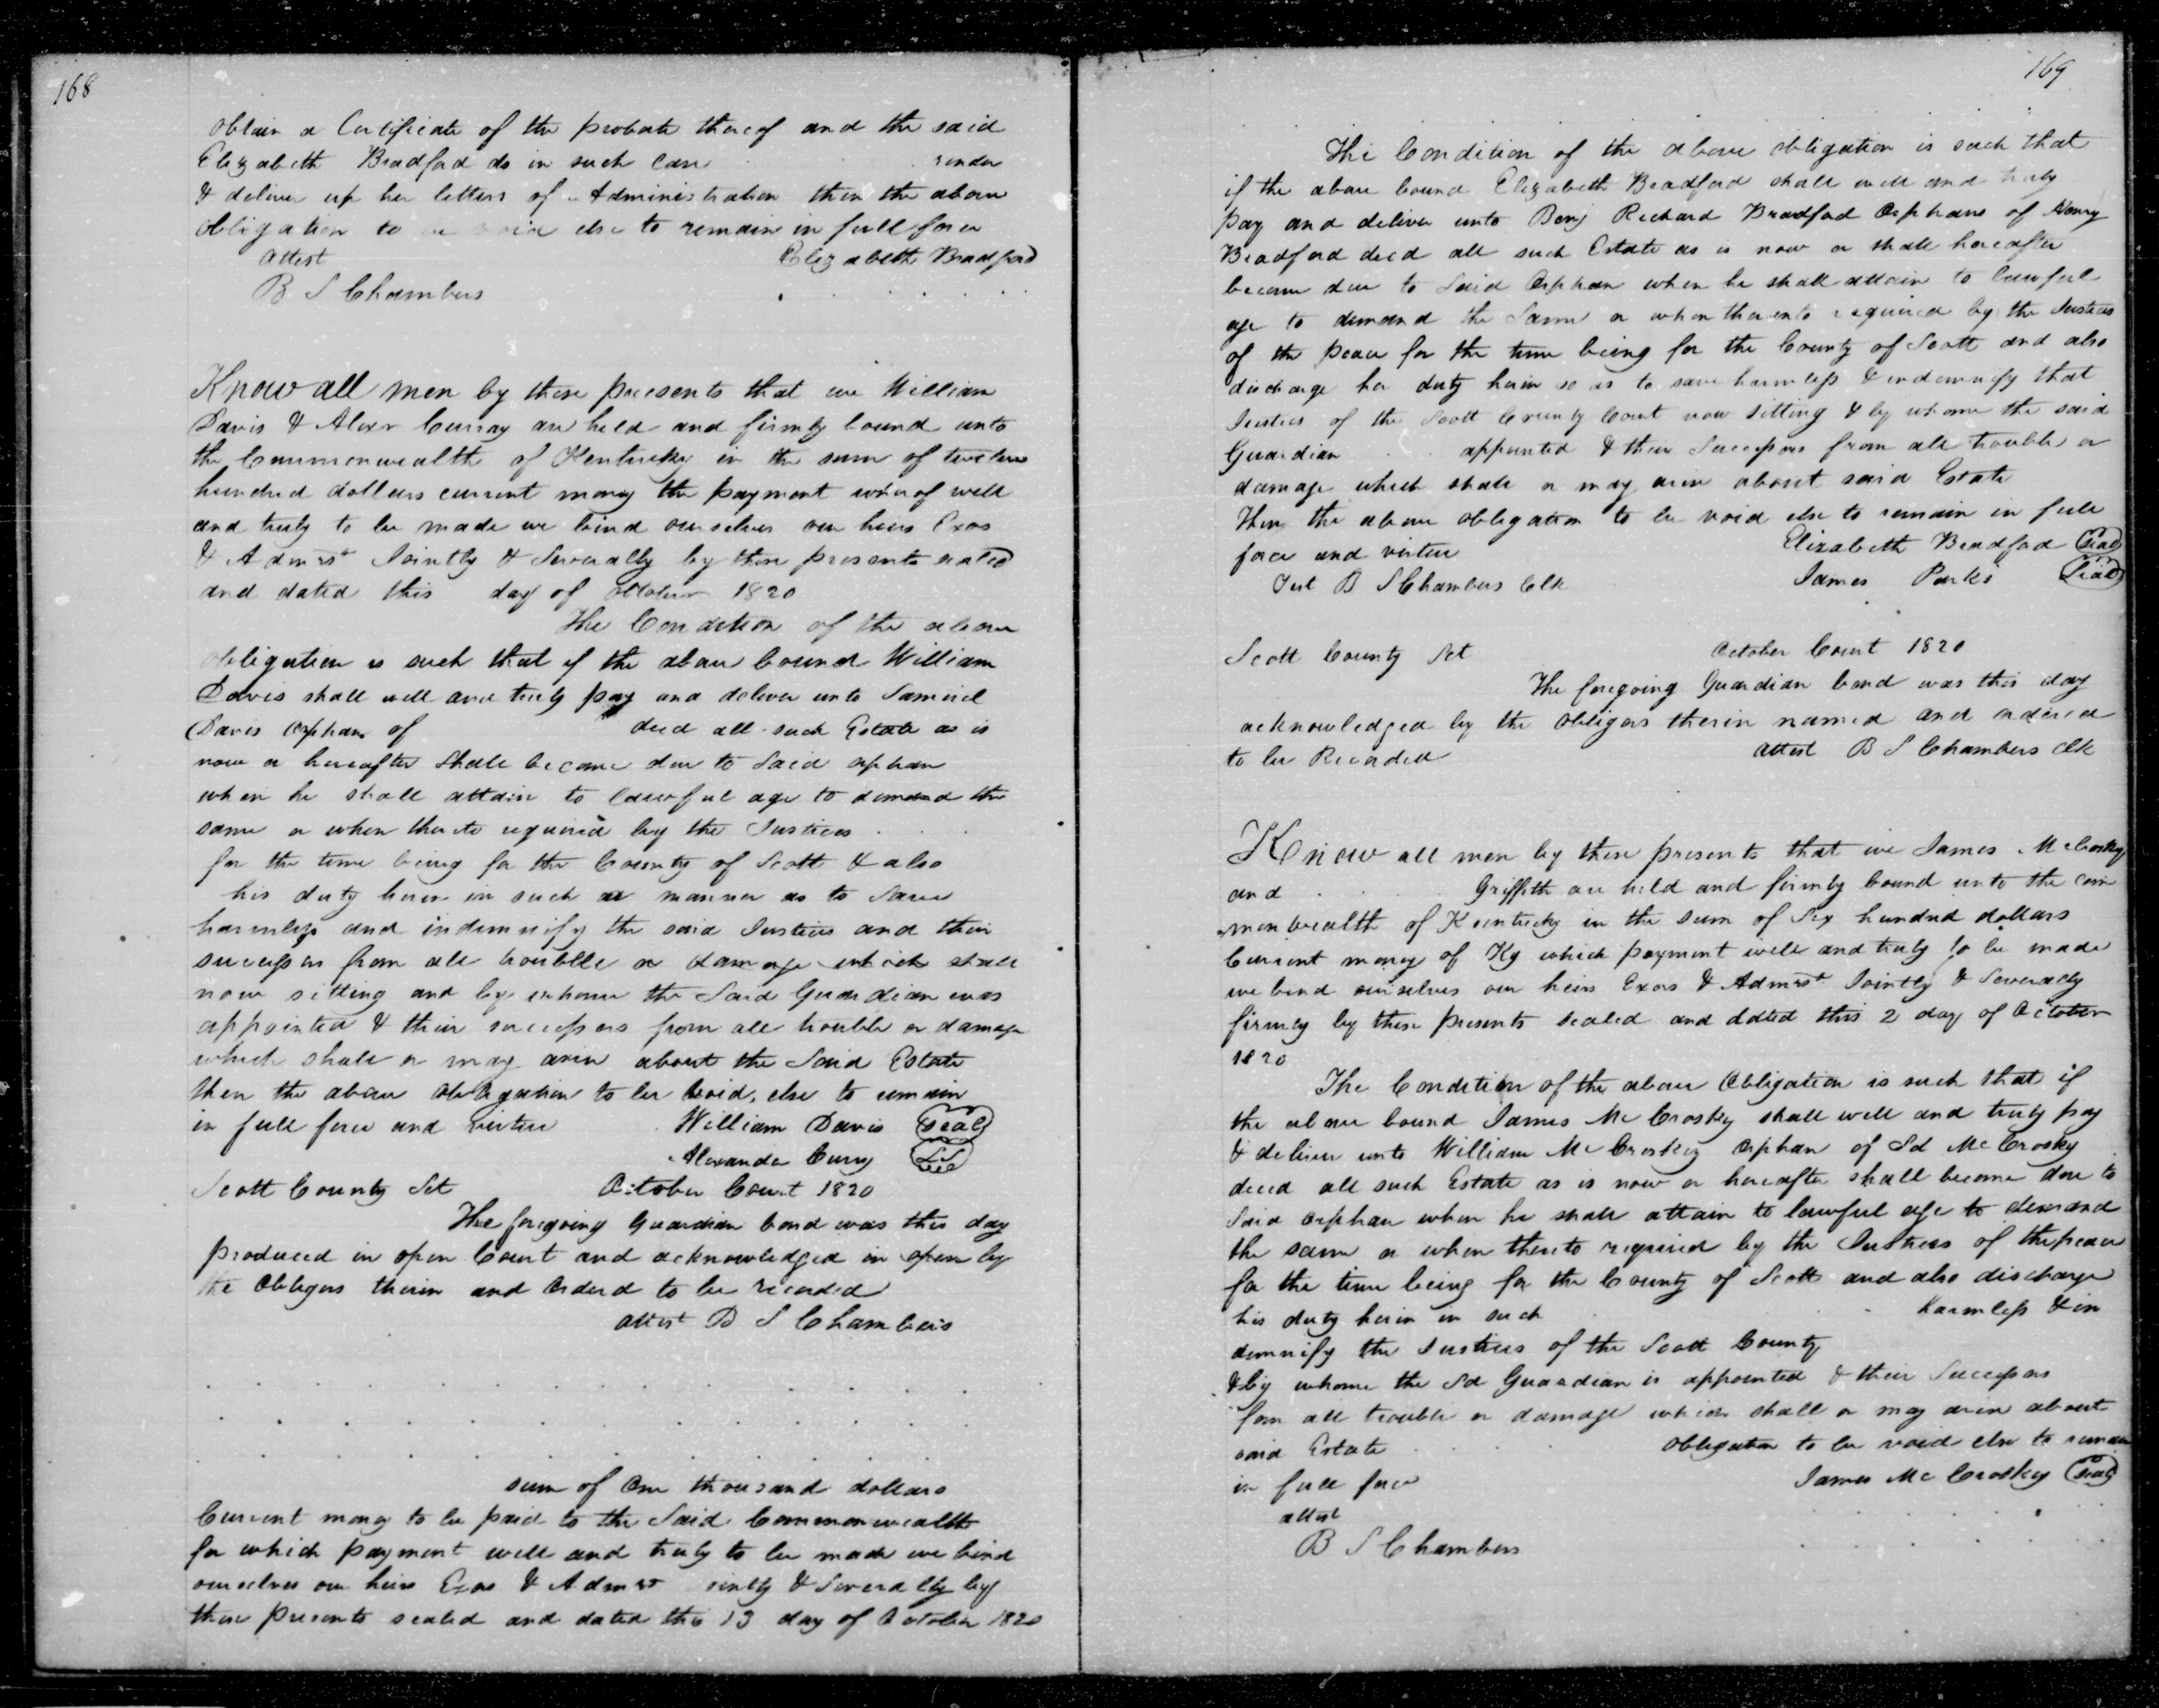 168
obtain a Certificate of the probate thereof and the said
Elizabeth Bradford do in such case render
& deliver up her letters of Administration then the above
obligation to be void else to remain in full force
attest Elizabeth Bradford
B S Chambers
Know all men by these presents that we William
Davis & Alexr Curray are held and firmly bound unto
the Commonwealth of Kentucky in the sum of twelve
hundred dollars current money the payment whereof well
and truly to be made we bind ourselves our heirs Exos
& Admrs Jointly & Severally by these presents sealed
and dated this day of October 1820
The Condition of the above
obligation is such that if the above bound William
Davis shall well and truly pay and deliver unto Samuel
Davis orphan of decd all such Estate as is
now or hereafter shall become due to said orphan
when he shall attain to lawful age to demand the
same or when thereto required by the Justices
for the time being for the County of Scott & also
his duty herein in such a manner as to save
harmless and indemnify the said Justices and their
successors from all trouble or damage which shall
now sitting and by whome the Said Guardian was
appointed & their successors from all trouble or damage
which shall or may arise about the Said Estate
then the above obligation to be void, else to remain
in full force and virtue William Davis Seal
Alexander Curry
Scott County Sct October Court 1820
The foregoing Guardian bond was this day
produced in open Court and acknowledged in open by
the Obligors therein and Ordered to be recorded
attest B S Chambers
sum of One thousand dollars
Current money to be paid to the Said Commonwealth
for which payment well and truly to be made we bind
ourselves our heirs Exos & Admrs ointly & Severally by
these presents sealed and dated this 13 day of October 1820
169
The Condition of the above obligation is such that
if the above bound Elizabeth Bradford shall well and truly
pay and deliver unto Benj Richard Bradford Orphans of Henry
Bradford decd all such Estate as is now or shall hereafter
become due to Said Orphan when he shall attain to lawful
age to demand the Same or when thereunto required by the Justices
of the peace for the time being for the County of Scott and also
discharge her duty herein so as to save harmless & indemnify that
Justices of the Scott County Court now sitting & by whome the said
Guardian appointed & their Successors from all trouble or
damage which shall or may arise about said Estate
Then the above obligation to be void else to remain in full
force and virtue Elizabeth Bradford Seal
Test B S Chambers Clk James Parks Seal
Scott County Sct October Court 1820
The foregoing Guardian bond was this day
acknowledged by the obligors therein named and ordered
to be Recorded attest B S Chambers clk
Know all men by these presents that we James McCrosky
and Griffith are held and firmly bound unto the com
monwealth of Kentucky in the sum of Six hundred dollars
Current money of Ky which payment well and truly to be made
we bind ourselves our heirs Exos & Admrs Jointly & Severally
firmly by these presents sealed and dated this 2 day of October
1820
The Condition of the above Obligation is such that if
the above bound James McCrosky shall well and truly pay
& deliver unto William McCroskey orphan of Sd McCrosky
decd all such Estate as is now or hereafter shall become due to
Said orphan when he shall attain to lawful age to demand
the same or when thereto required by the Justices of the peace
for the time being for the County of Scott and also discharge
his duty herein in such harmless & in
demnify the Justices of the Scott County
& by whome the Sd Guardian is appointed & their Successors
from all trouble or damage which shall or may arise about
said Estate obligation to be void else to remain
in full force James McCroskey Seal
attest
B S Chambers